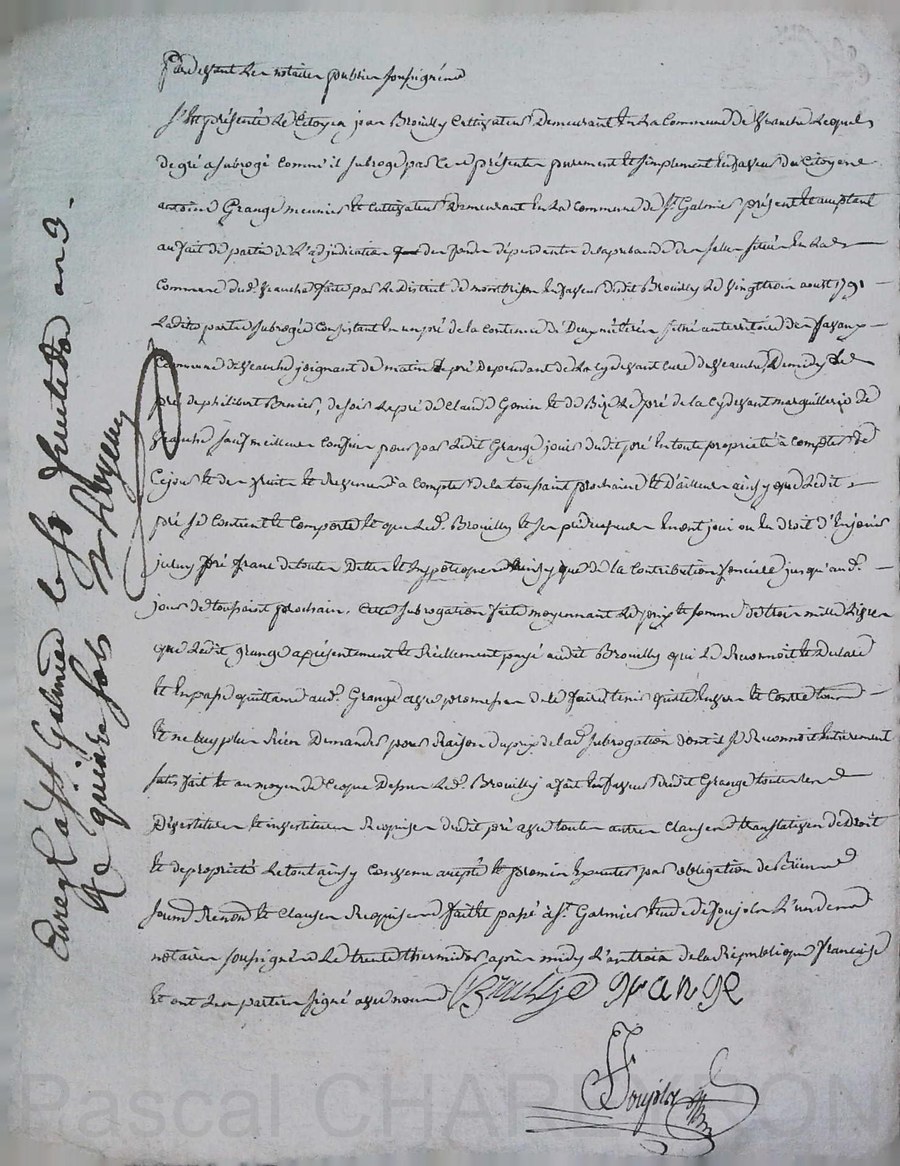 Pardevant les notaires publics soussignés
S'est présenté le Citoyen jean Brouilly Cultivateur Demeurant En la Commune De Veauche Lequel
de gré a subrogé comm'il subroge par les présentes purement et simplement En faveur du Citoyen
antoine Grange meunier et Cultivateur Demeurant En la Commune de St Galmier présent et acceptant
au fait de partie de L'adjudication des fonds dépendants de la prebande des salles située En la
Commune dud. Veauche faite par le District de montbrison En faveur dudit Brouilly le vingt trois aoust 1791
Ladite partie subrogée Consistant En un pré de la contenue de Deux métérées situé au territoire des
Commune de Veauche joignant de matin le pré Dependant de La cydevant Cure de Veauche, De midy le
pré de philibert de soir le pré de Claude Gonin et de Bize le pré de la Cydevant marguillerie de
Veauche sauf meilleurs Confins pour par Ledit Grange jouir dudit pré En toute propriété à compter De
Ce jour et des fruits et Revenus a Compter de la toussaint prochaine et D'ailleurs ainsy que Ledit
pré se Contient et Comporte et que led. Brouilly et ses prédecesseurs En ont joui ou En droit d'En jouir
icelluy pré franc de toutes Dettes et hypoteques ainsy que de la Contribution fonciere jusqu'aud.
jour de toussaint prochain. Cette subrogation faite moyennant Le prix et somme de trois mille Livres
que Ledit Grange a présentement et Réellement payé audit Brouilly qui Le Reconnoit et Declare
et En passe quittance aud. Grange avec promesse de le faire tenir quitte Envers et Contre tous
Et ne luy plus Rien Demander pour Raison du prix de lad. subrogation dont il se Reconnoit Entierement
satisfait et au moyen de Ceque Dessus Led. Brouilly a fait En faveur dudit Grange toutes
Dévestitures et investitures Requises dudit pré avec toutes autres Clauses translatives de Droit
et de propriété Le tout ainsy Convenu accepté et promis Executer par obligation de Biens
soumis Renon. et Clauses Requises fait et passé à St Galmier Etude de Soujols L'un des
notaires soussignés Le trente thermidor après midy L'an trois de la République française
Et ont Les parties signé avec nous Brouilly grange
Soujols
Enregt. à St. Galmier le 30 fructidor an 3
Rc quatre sols